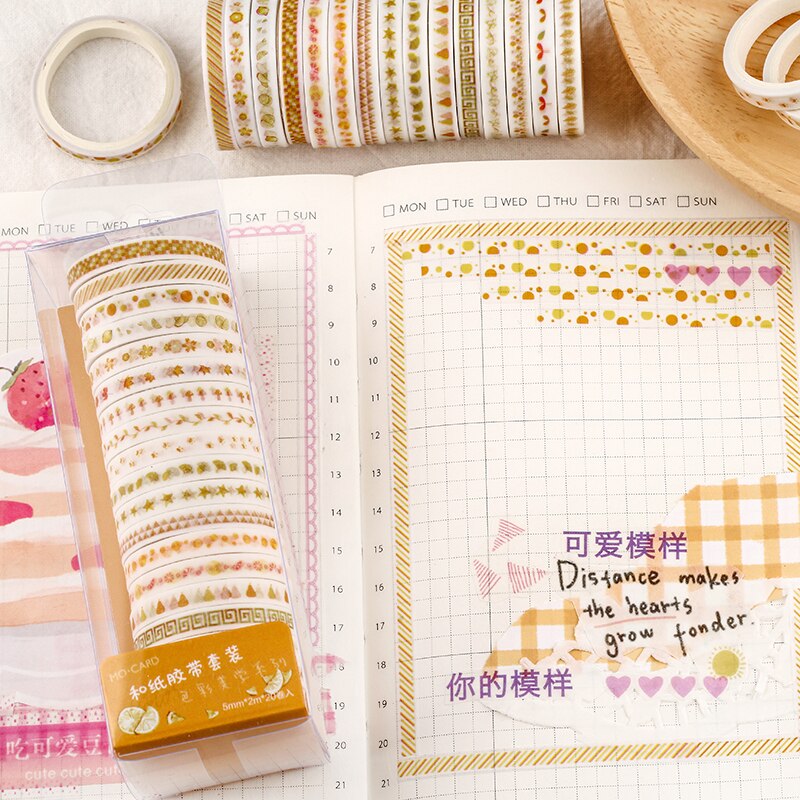 MON TUE WED SAT SUN
MON TUE WED THU FRI SAT SUN
7
8
9
10
11
12
13
14
15
16
17
18
19
20
21
7
8
9
10
11
12
13
14
15
16
17
18
19
20
21
可爱模样
Distance makes
the hearts
grow fonder.
你的模样
MO·CARD
和纸胶带套装
色彩美学系列
5mm*2m*20卷入
吃可爱豆
cute cute cut